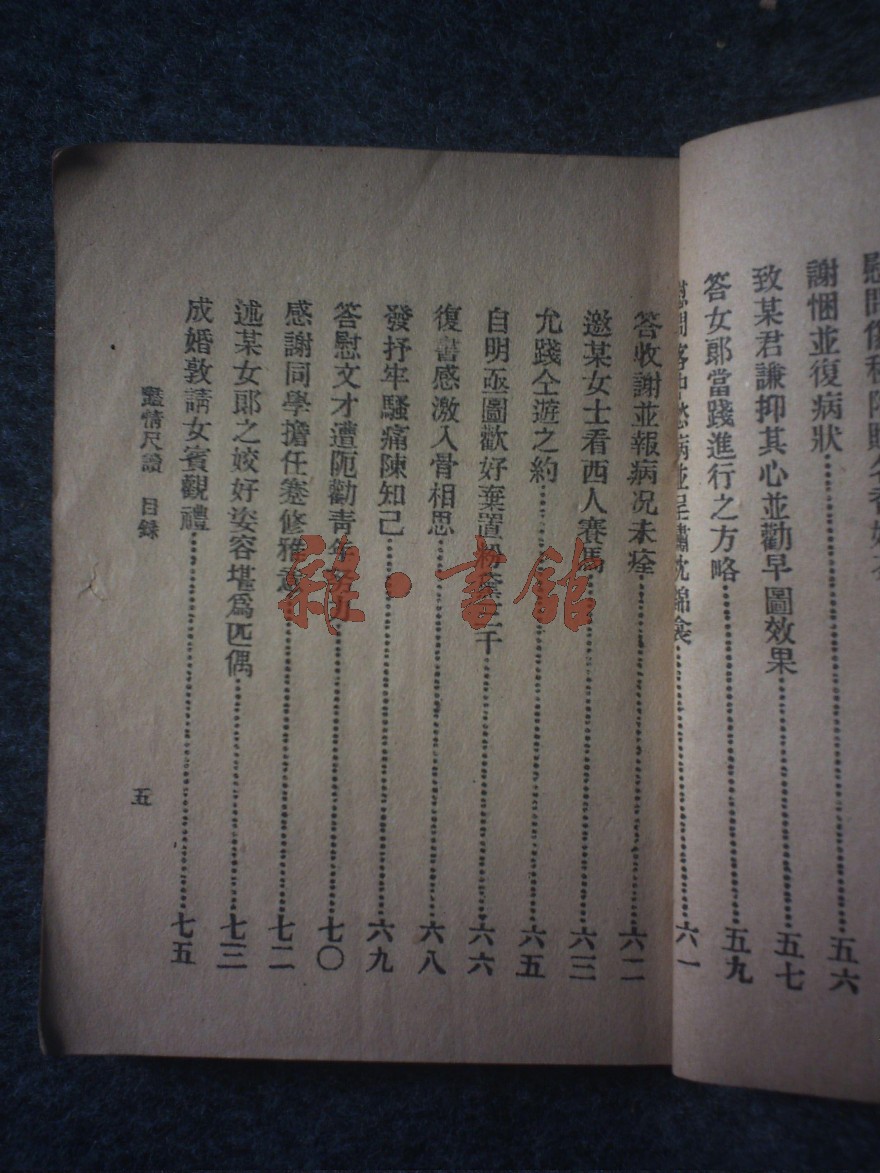 謝悃並復病狀……五六
致某君謙抑其心並勸早圖效果……五七
答女郎當踐進行之方略……五九
枕錦衾……六一
答收謝並報病况未痊……六二
邀某女士看西人賽馬……六三
允踐仝遊之約……六五
自明亟圖歡好棄置粉黛三千……六六
復書感激入骨相思……六八
發抒牢騷痛陳知己……六九
答慰文才遭阨勸青年努力……七〇
感謝同學擔任蹇修雅意……七二
述某女郎之姣好姿容堪爲匹偶……七三
成婚敦請女賓觀禮……七五
豔情尺牘 目録
五
雜·書館